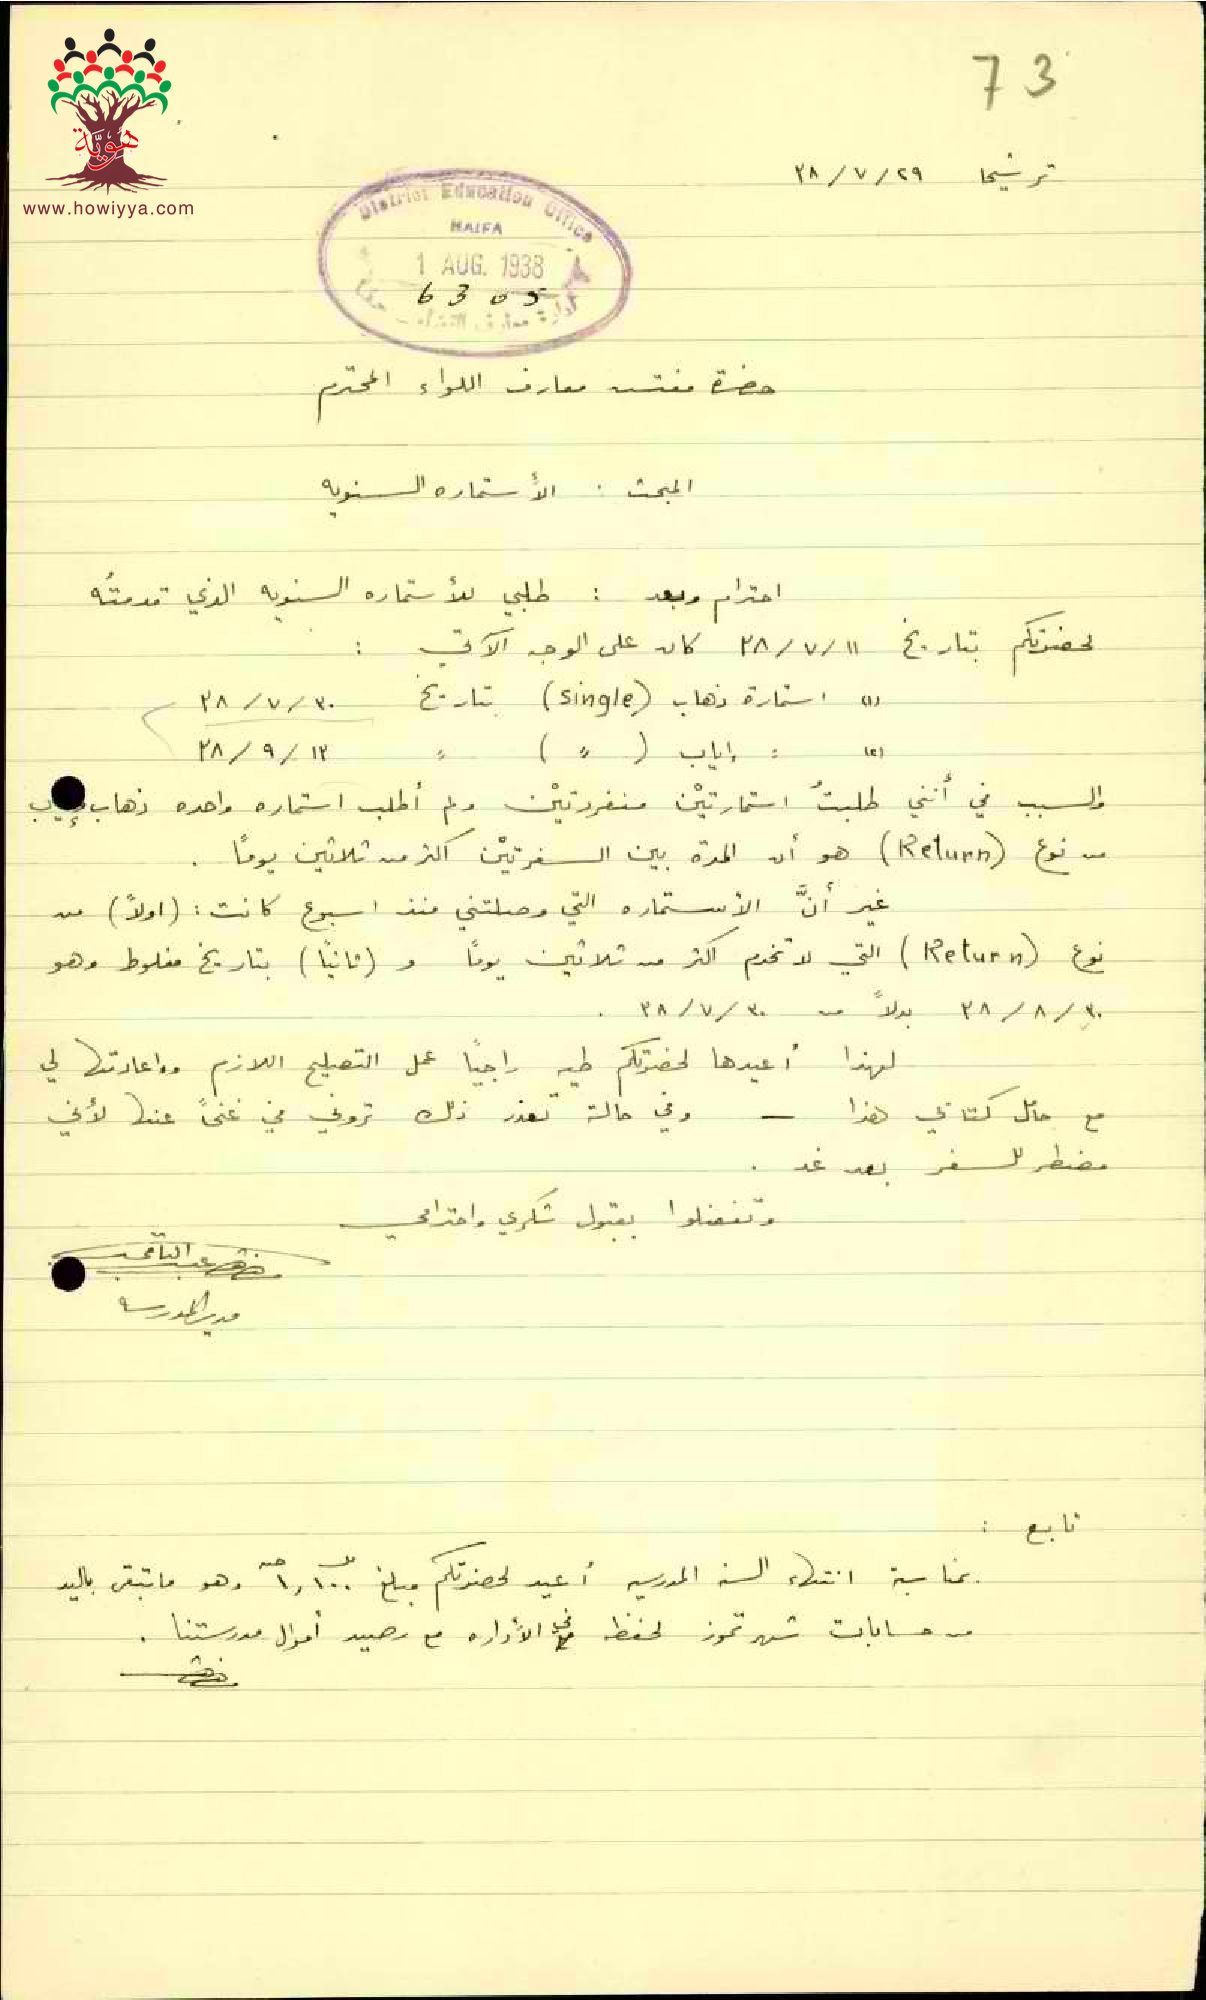 73
هُوِيَّة
www.howiyya.com
ترشيحا ٢٩/٧/٣٨
District Education Office
HAIFA
1 AUG. 1938
6305
ادارة معارف
حضرة مفتش معارف اللواء المحترم
المبحث : الأستماره السنويه
احترام وبعد : طلبي للأستماره السنويه الذي قدمتُه
لحضرتكم بتاريخ ١١/٧/٣٨ كان على الوجه الآتي :
(١) استمارة ذهاب (single) بتاريخ ٣٠/٧/٣٨
(٢) = إياب ( = ) = ١٣/٩/٣٨
والسبب في أنني طلبتُ استمارتيْن منفردتيْن ولم أطلب استماره واحده ذهاب إياب
من نوع (Return) هو أن المدة بين السفرتيْن أكثر من ثلاثين يومًا .
غير أنَّ الأستماره التي وصلتني منذ اسبوع كانت : (اولاً) من
نوع (Return) التي لا تخدم اكثر من ثلاثين يومًا و (ثانيًا) بتاريخ مغلوط وهو
٣٠/٨/٣٨ بدلاً من ٣٠/٧/٣٨ .
لهذا أعيدها لحضرتكم طيه راجيًا عمل التصليح اللازم واعادتها لي
مع حامل كتابي هذا – وفي حالة تعذر ذلك تروني في غنىً عنها لأني
مضطر للسفر بعد غد .
وتفضلوا بقبول شكري واحترامي
مدير المدرسة
تابع :
بمناسبة انتهاء السنه المدرسيه أعيد لحضرتكم مبلغ ١,١٠٠ وهو ما تبقى باليد
من حسابات شهر تموز لحفظه في الأداره مع رصيد أموال مدرستنا .